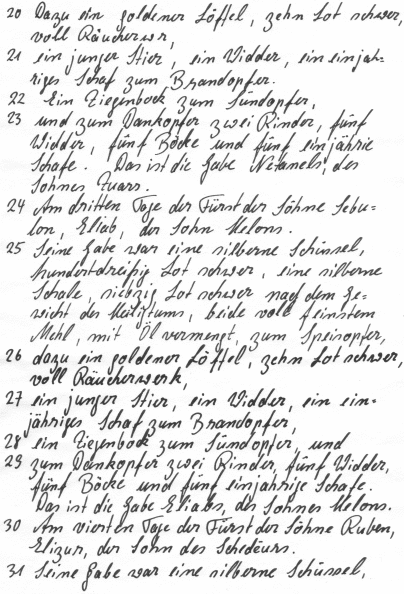 20 Dazu ein goldener Löffel, zehn Lot schwer,
voll Räucherwr,
21 ein junger Stier, ein Widder, ein einjäh-
riges Schaf zum Brandopfer.
22 Ein Ziegenbock zum Sündopfer,
23 und zum Dankopfer zwei Rinder, fünf
Widder, fünf Böcke und fünf einjährie
Schafe. Das ist die Gabe Netanels, des
Sohnes Zuars.
24 Am dritten Tage der Fürst der Söhne Sebu-
lon, Eliab, der Sohn Helons.
25 Seine Gabe war eine silberne Schüssel,
hundertdreißig Lot schwer, eine silberne
Schale, siebzig Lot schwer nach dem Ge=
wicht des Heiligtums, beide voll feinstem
Mehl, mit Öl vermengt, zum Speisopfer,
26 dazu ein goldener Löffel, zehn Lot schwer,
voll Räucherwerk,
27 ein junger Stier, ein Widder, ein ein-
jähriges Schaf zum Brandopfer,
28 ein Ziegenbock zum Sündopfer, und
29 zum Dankopfer zwei Rinder, fünf Widder,
fünf Böcke und fünf einjährige Schafe.
Das ist die Gabe Eliabs, des Sohnes Helons.
30 Am vierten Tage der Fürst der Söhne Ruben,
Elizur, der Sohn des Schedëurs.
31 Seine Gabe war eine silberne Schüssel,